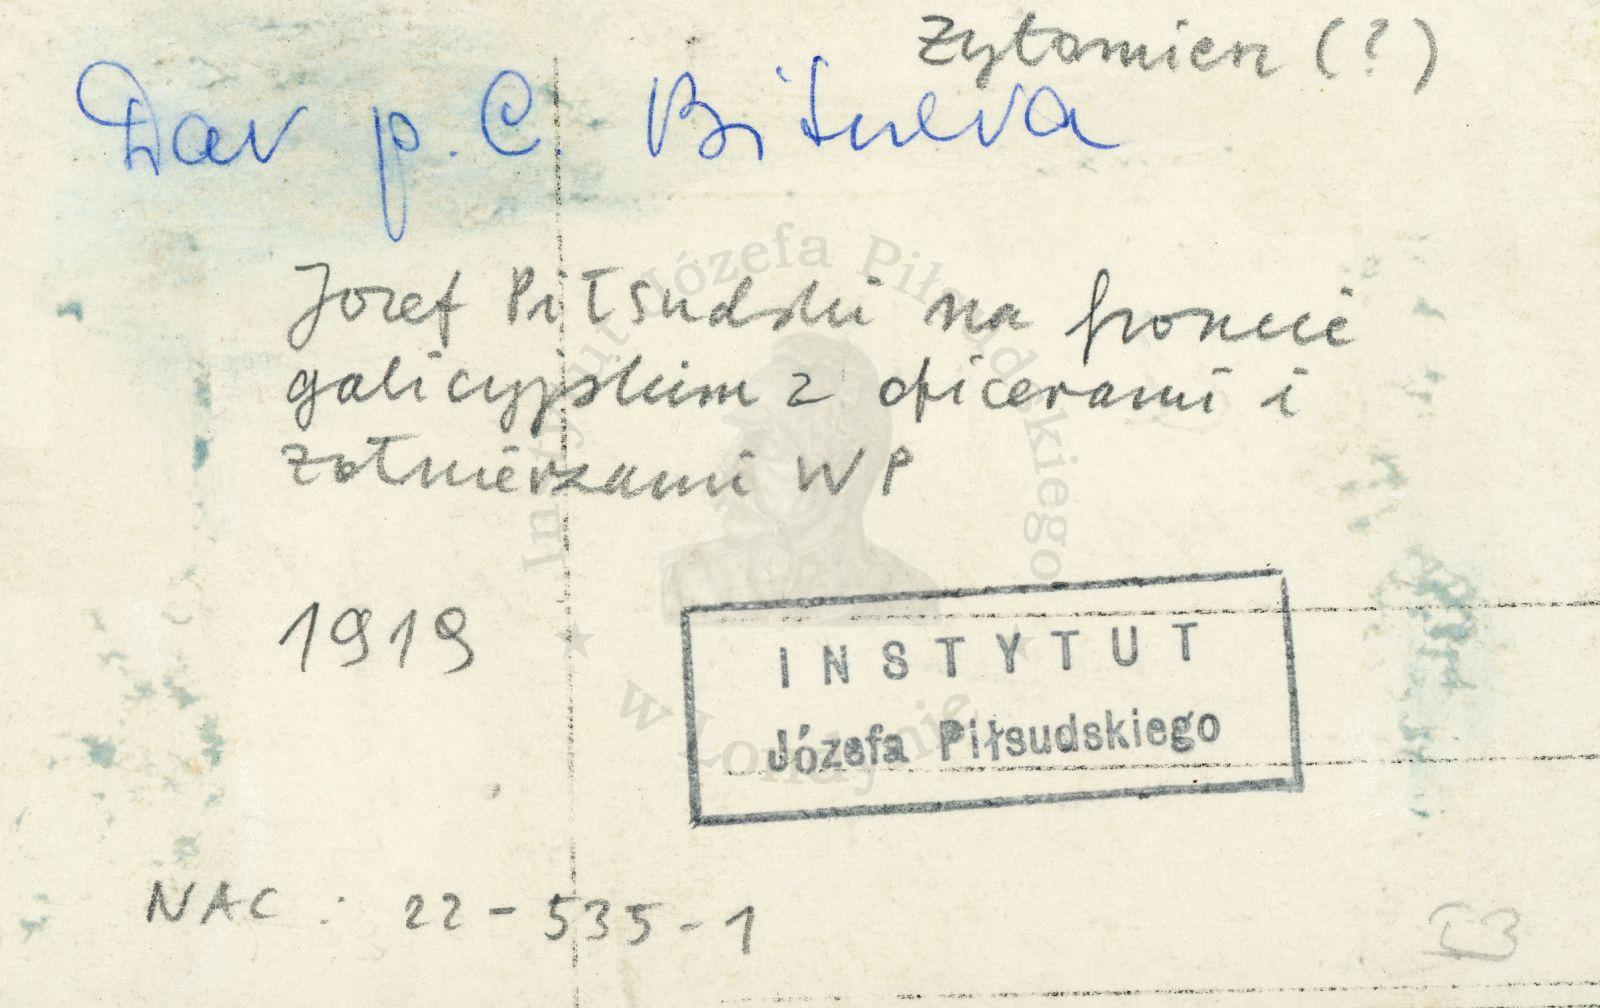 Zytomierz (?)
Dar p. C. Bitnera
Jozef Piłsudski na froncie
galicyjskim z oficerami i
żołnierzami WP
1919
INSTYTUT
Józefa Piłsudskiego
NAC : 22-535-1
I 3
Instytut Józefa Piłsudskiego
w Londynie